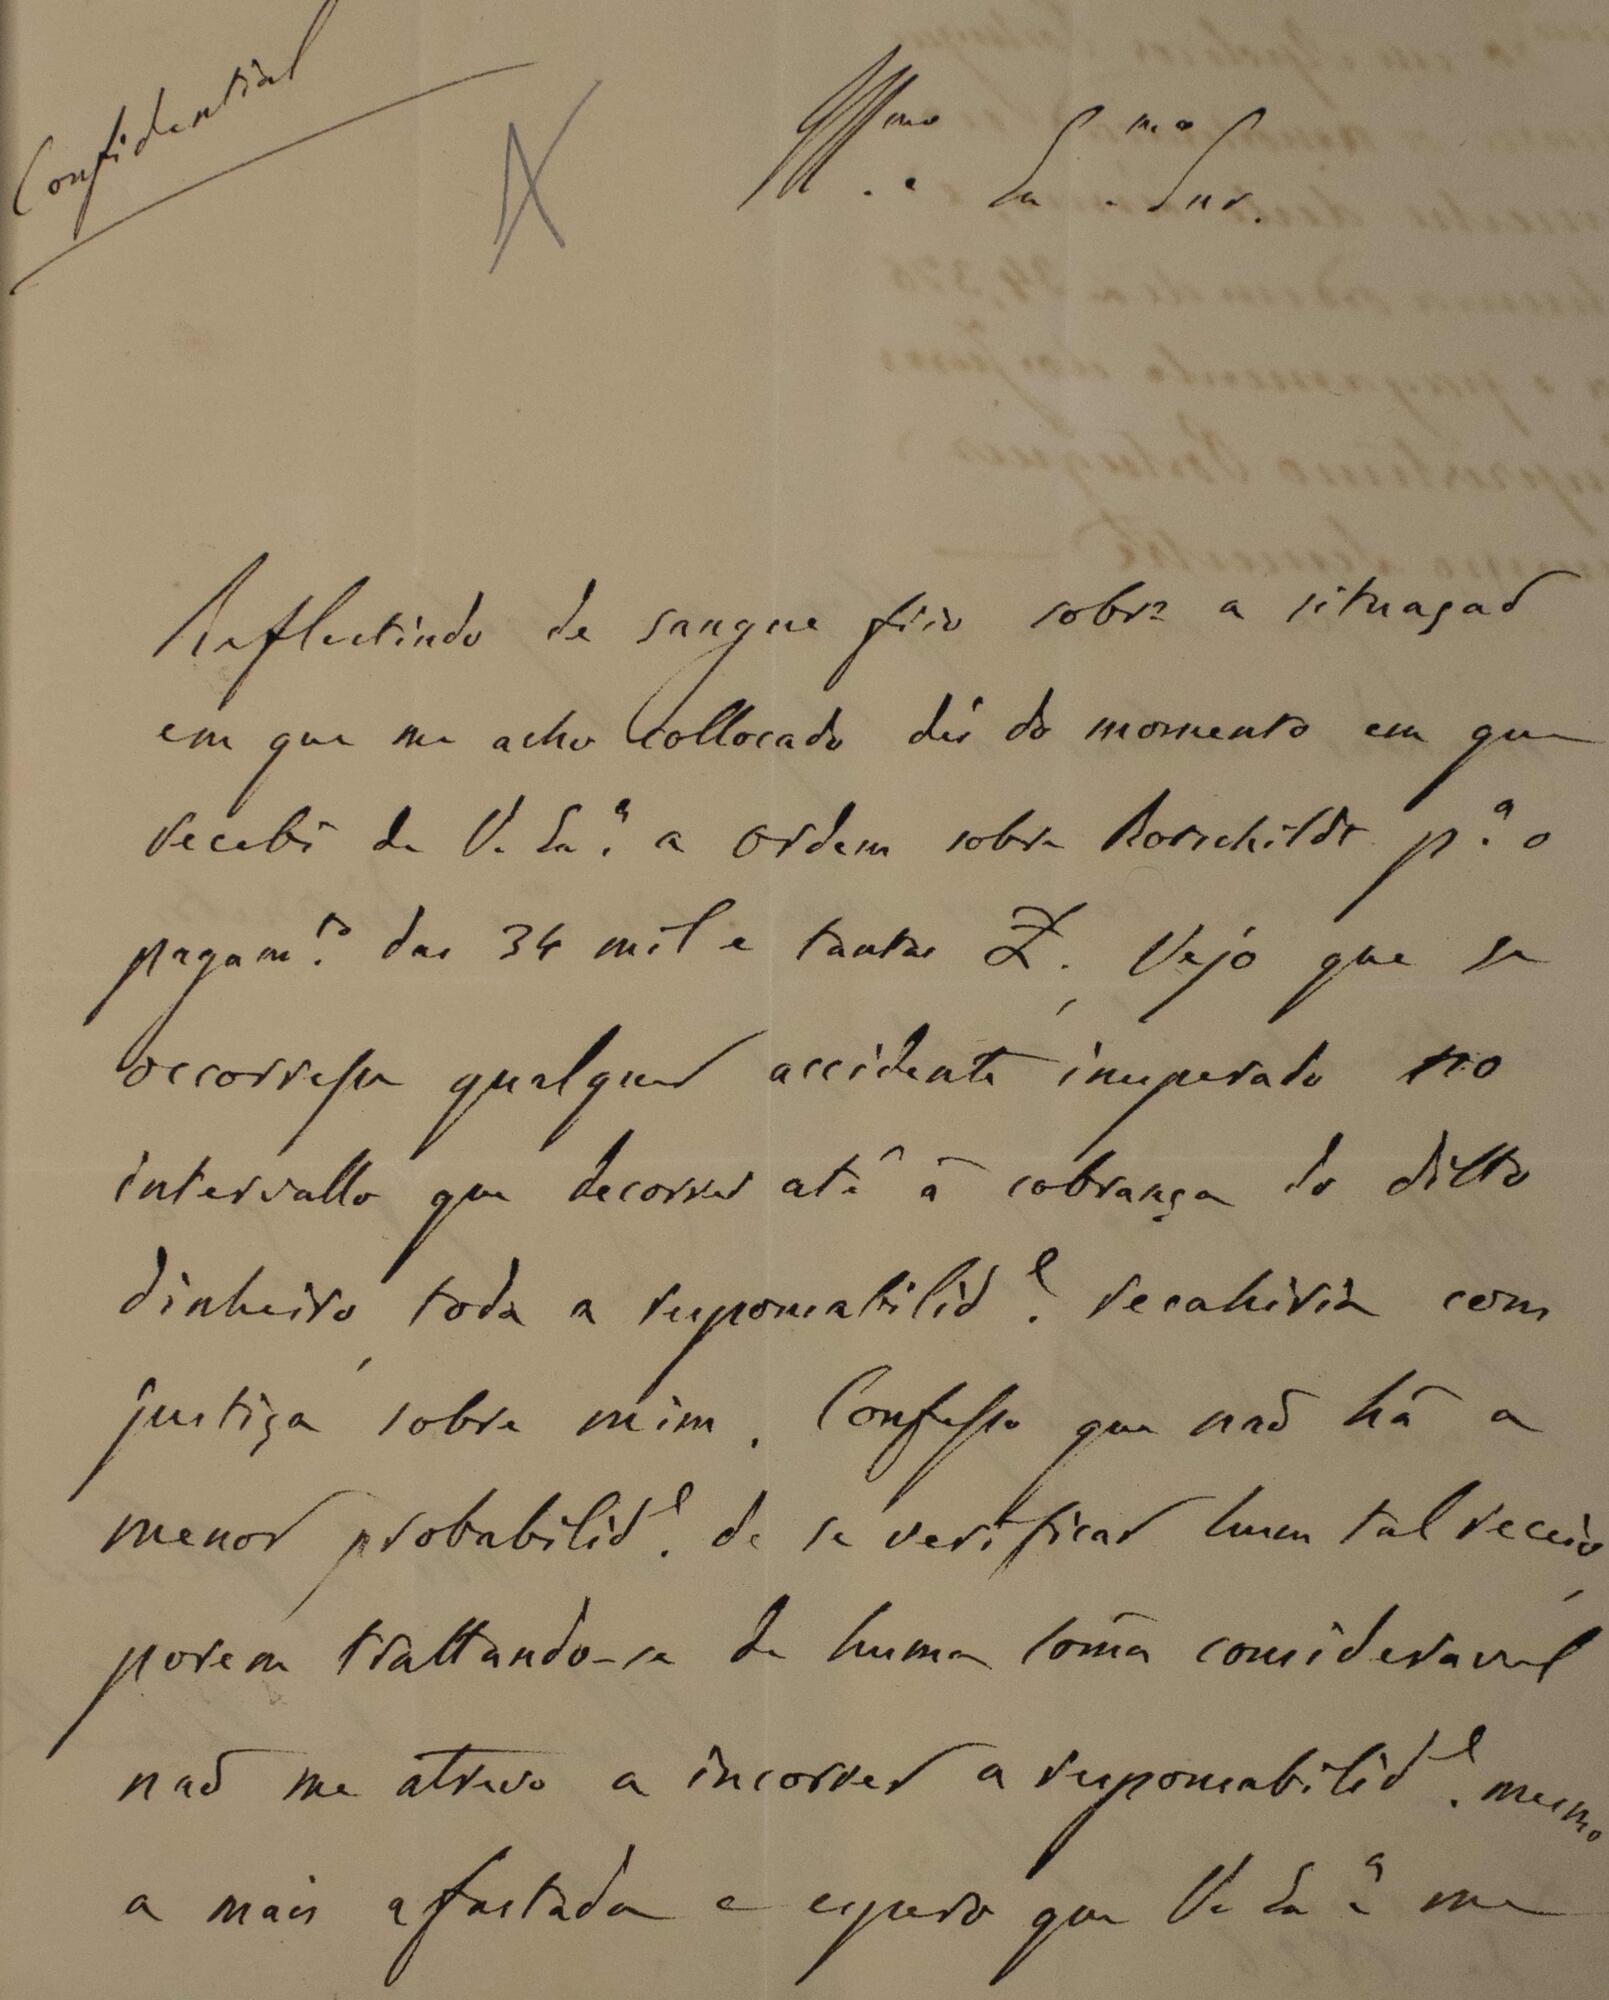 Confidential
Illmo. e Exmo. Snr.
Reflectindo de sangue frio sobre a situaçaõ
em que me acho collocado dês do momento em que
recebi de V. Exª. a ordem sobre Rotschildt pª. o
pagamto. das 34 mil e tantas £. Vejo que se
occorresse qualquer accidente inesperado no
intervallo que decorrer atê â cobrança do ditto
dinheiro, toda a responsabilide. recahiria com
justiça sobre mim. Confesso que naõ hâ a
menor probabilide. de se verificar hum tal receio,
porem trattando-se de huma soma consideravel
naõ me atrevo a incorrer a responsabilide. mesmo
a mais afastada e espero que V. Exª. me